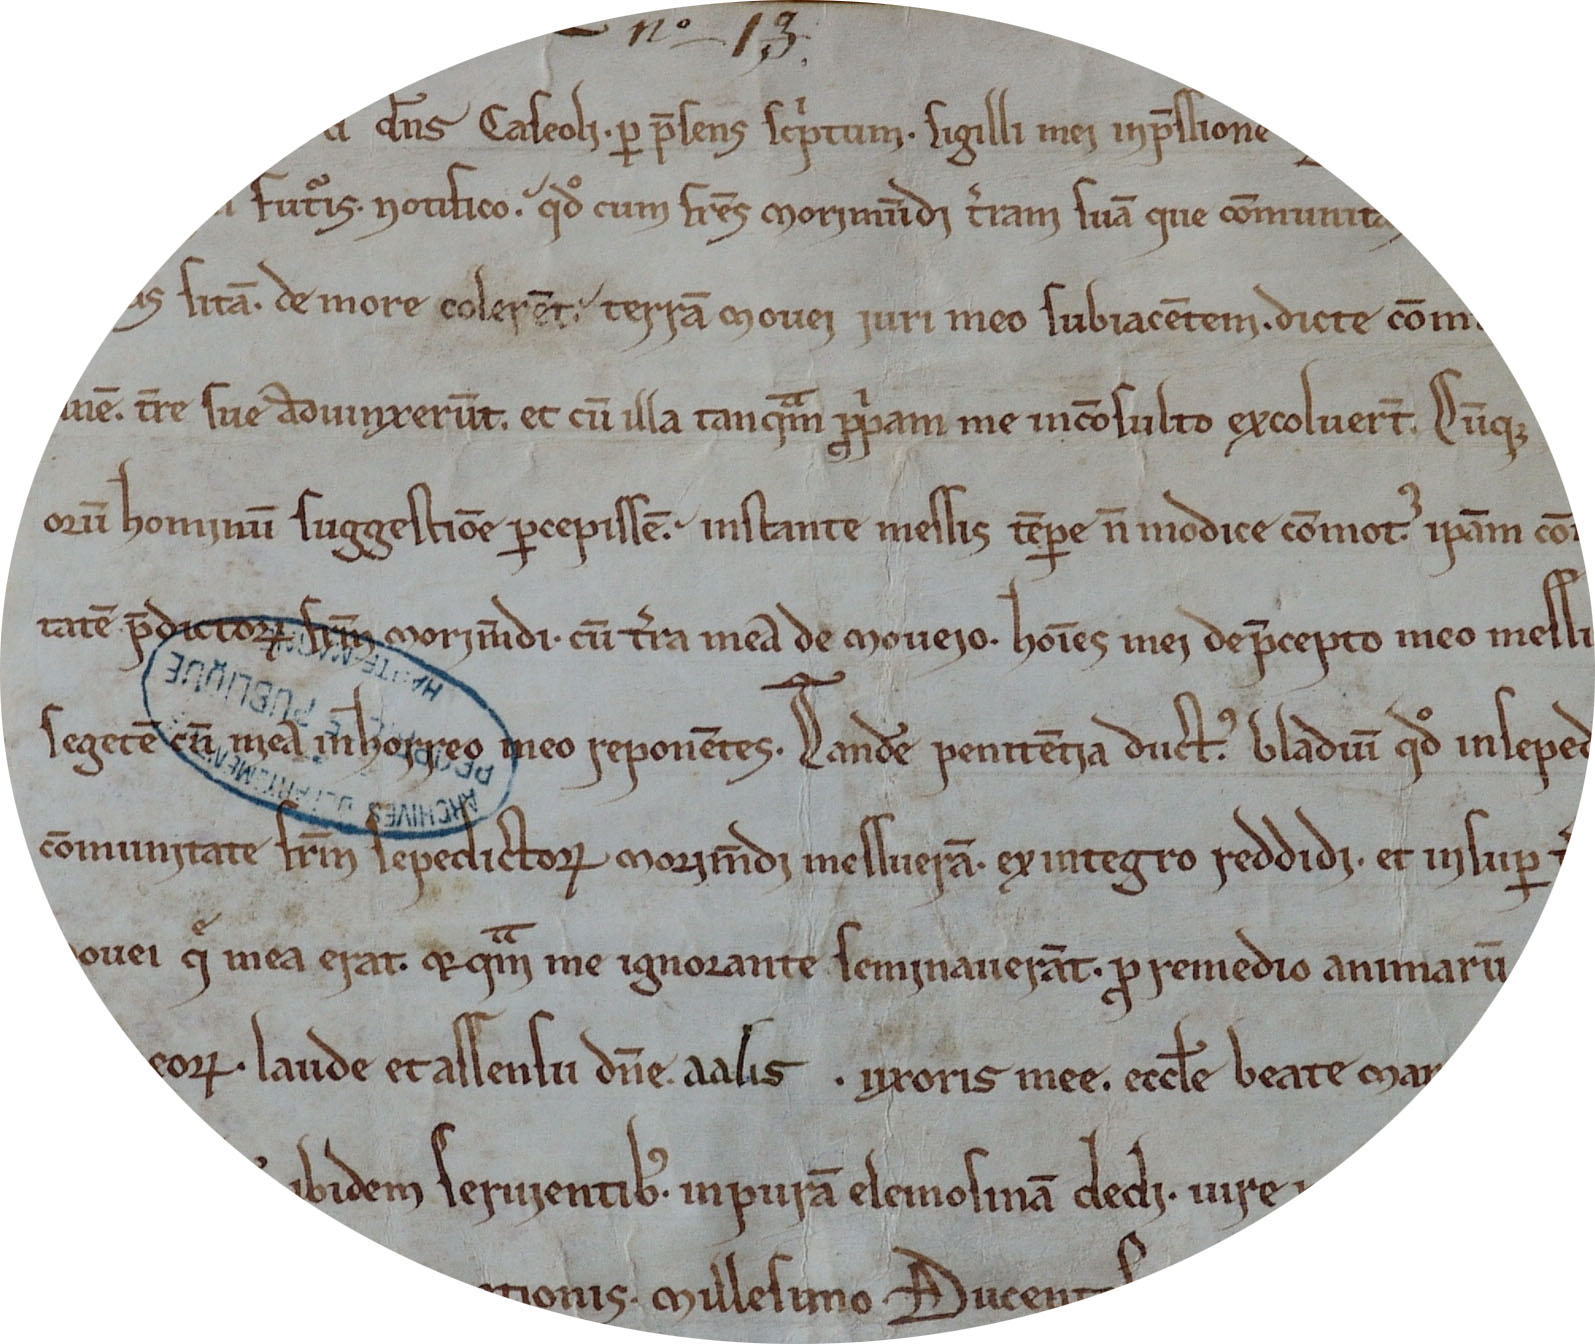 nº 13.
dn̄s Caseoli . ꝑ p̄sens scͥptum . sigilli mei inp̄ssione
futuͬis . notifico . qdͦ cum fr̄es Morimūdi t̄ram suā que cōmunita
sitā . de more colerēt . terrā Mouei iuri meo subiacētem . dicte cōm
t̄re sue adiunxerūt . et cū illa tanqͣm ꝓpͥam me incōsulto excoluert̄ . Cūqꝫ
orū hominū suggestiōe ꝑcepissē . instante messis tēꝑe n̄ modice cōmotꝰ ip̄am cō
tatē p̄dictoꝝ fr̄m Morim̄di . cū t̄ra mea de Moueio . hoīes mei de p̄cepto meo messu
segetē cū mea in horreo meo reponētes . Tandē penitētia ductꝰ bladiū qdͦ in seped
cōmunitate fr̄m sepedictoꝝ Morim̄di messuerā . ex integro reddidi . et insuꝑ t̄
ouei q̄ mea erat . qͣm me ignorante seminauerāt . ꝓ remedio animarū
eoꝝ . laude et assensu dn̄e . aalis . uxoris mee . eccl̄e beate Mar
ibidem seruientibꝰ . in purā elemosinā dedi . iure
tionis . Millesimo Ducent
ARCHIVES DEPARTEMENT
PUBLIQUE
HAUTE-MARNE